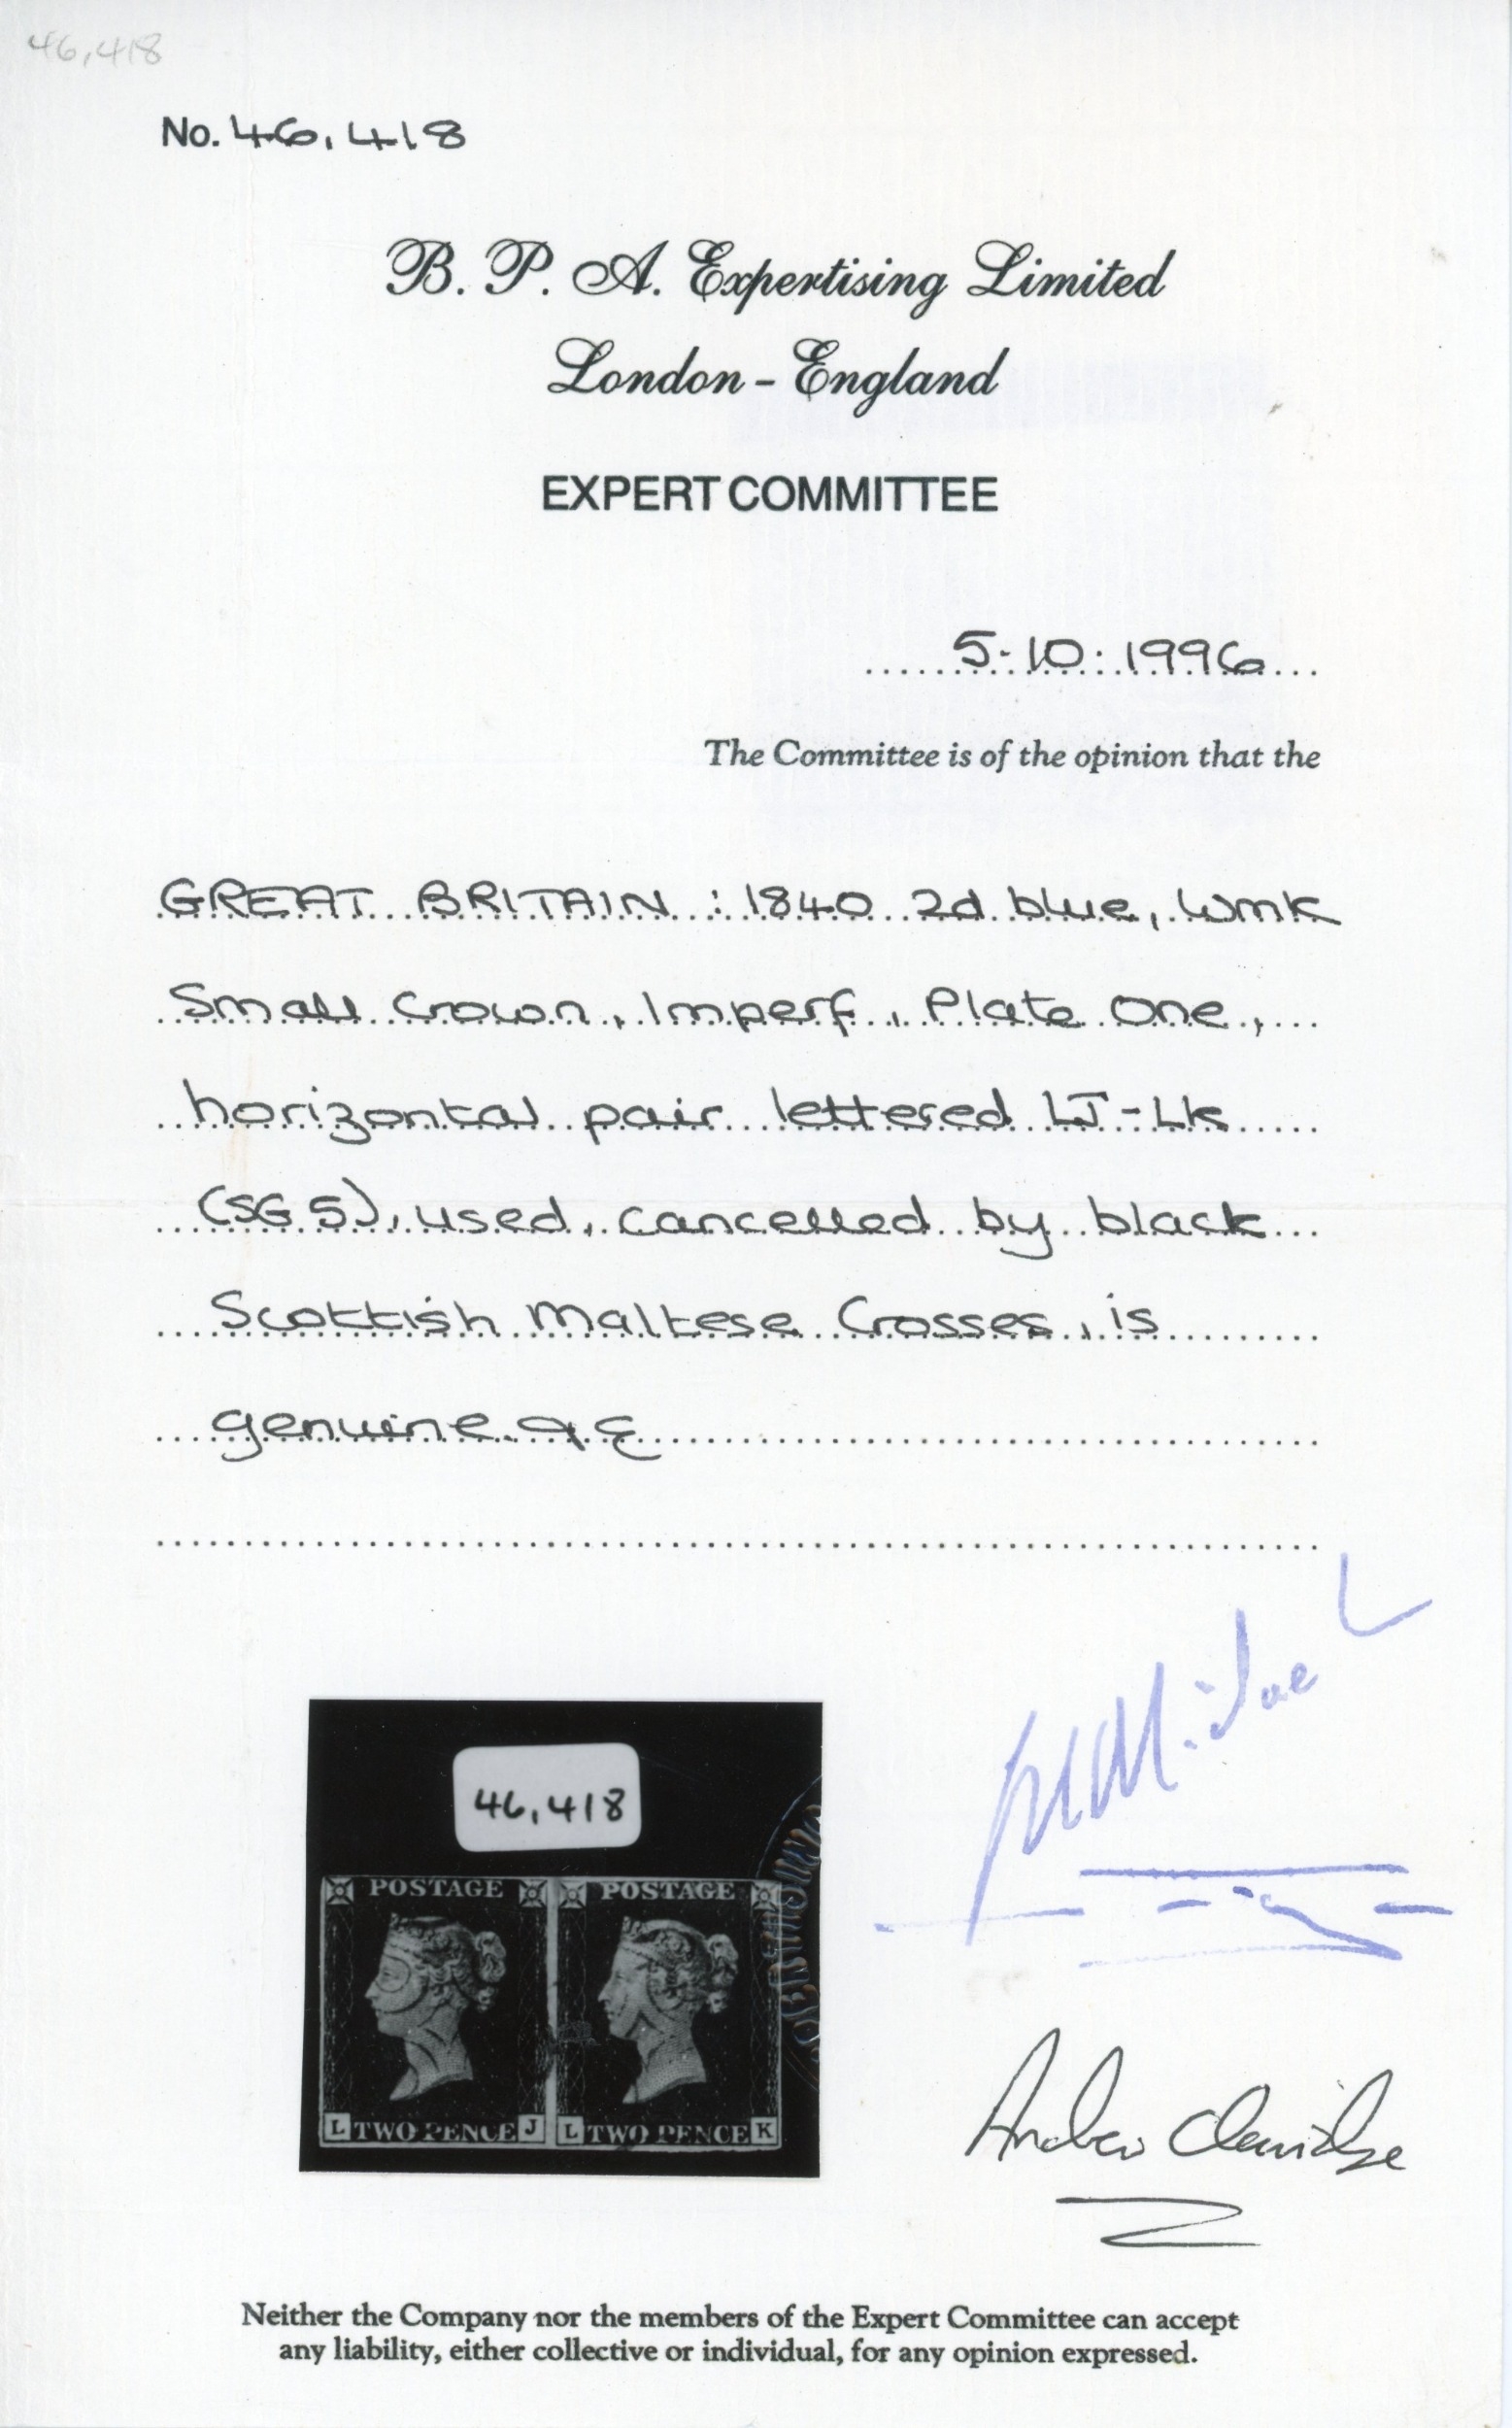 46,418
No. 46,418
B. P. A. Expertising Limited
London - England
EXPERT COMMITTEE
5.10.1996
The Committee is of the opinion that the
GREAT BRITAIN : 1840 2d blue, Wmk
Small Crown, Imperf, Plate One,
horizontal pair lettered LJ-LK
(SG 5), used, cancelled by black
Scottish Maltese Crosses, is
genuine.
46,418
POSTAGE POSTAGE
L TWO PENCE J L TWO PENCE K
Neither the Company nor the members of the Expert Committee can accept
any liability, either collective or individual, for any opinion expressed.